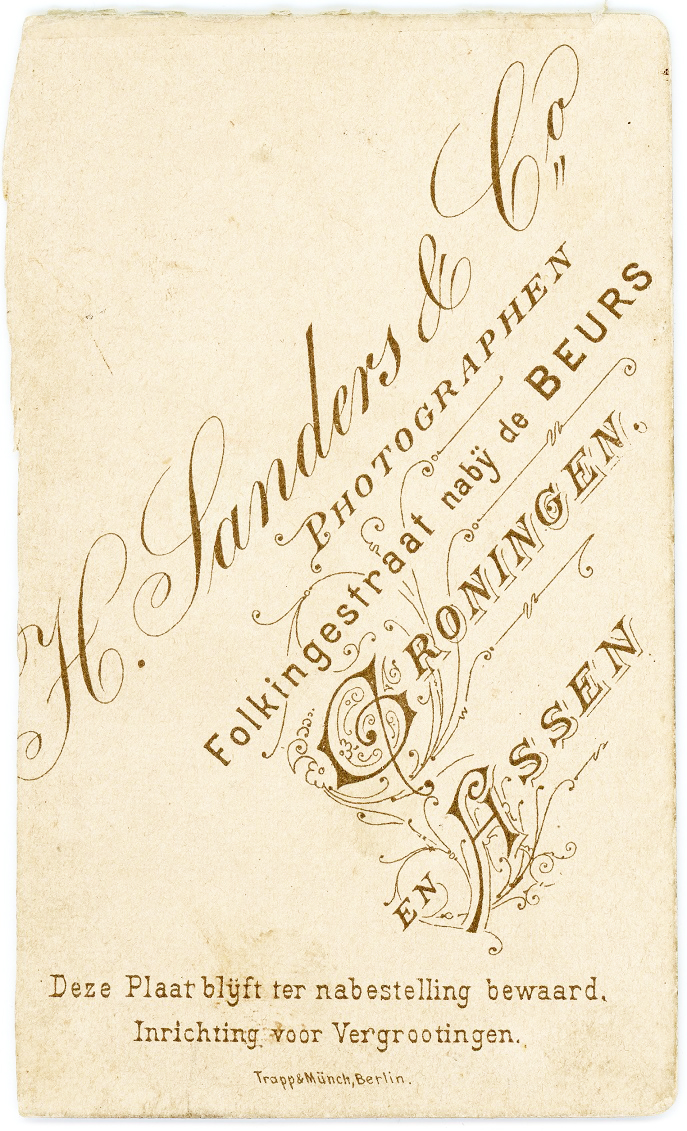 H. Sanders & Co
PHOTOGRAPHEN
Folkingestraat nabÿ de BEURS
GRONINGEN.
EN ASSEN
Deze Plaat blÿft ter nabestelling bewaard.
Inrichting voor Vergrootingen.
Trapp&Münch,Berlin.